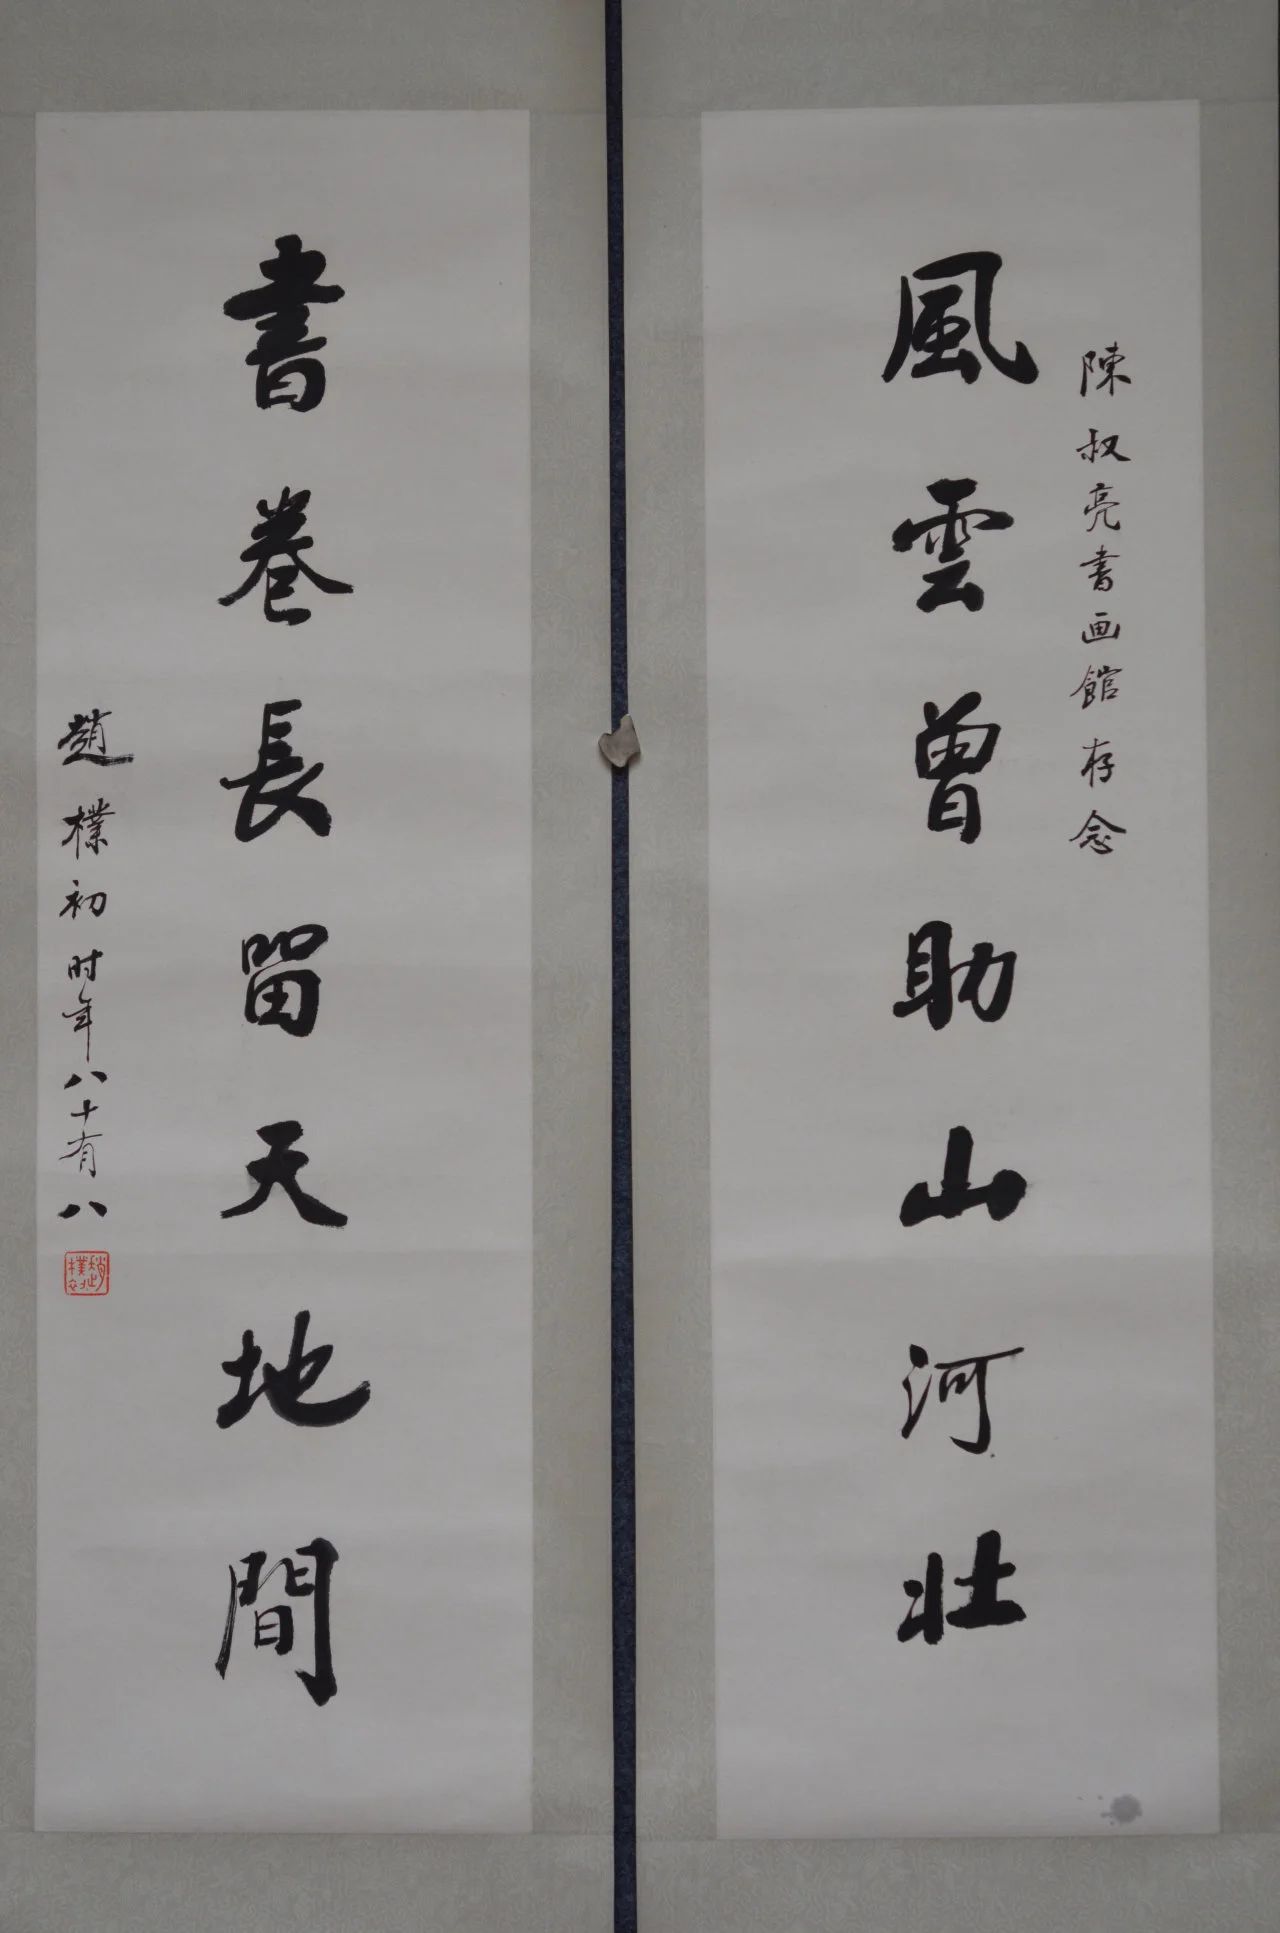 陳叔亮書画館存念
風雲曾助山河壯
書卷長留天地間
趙樸初时年八十有八
趙樸初